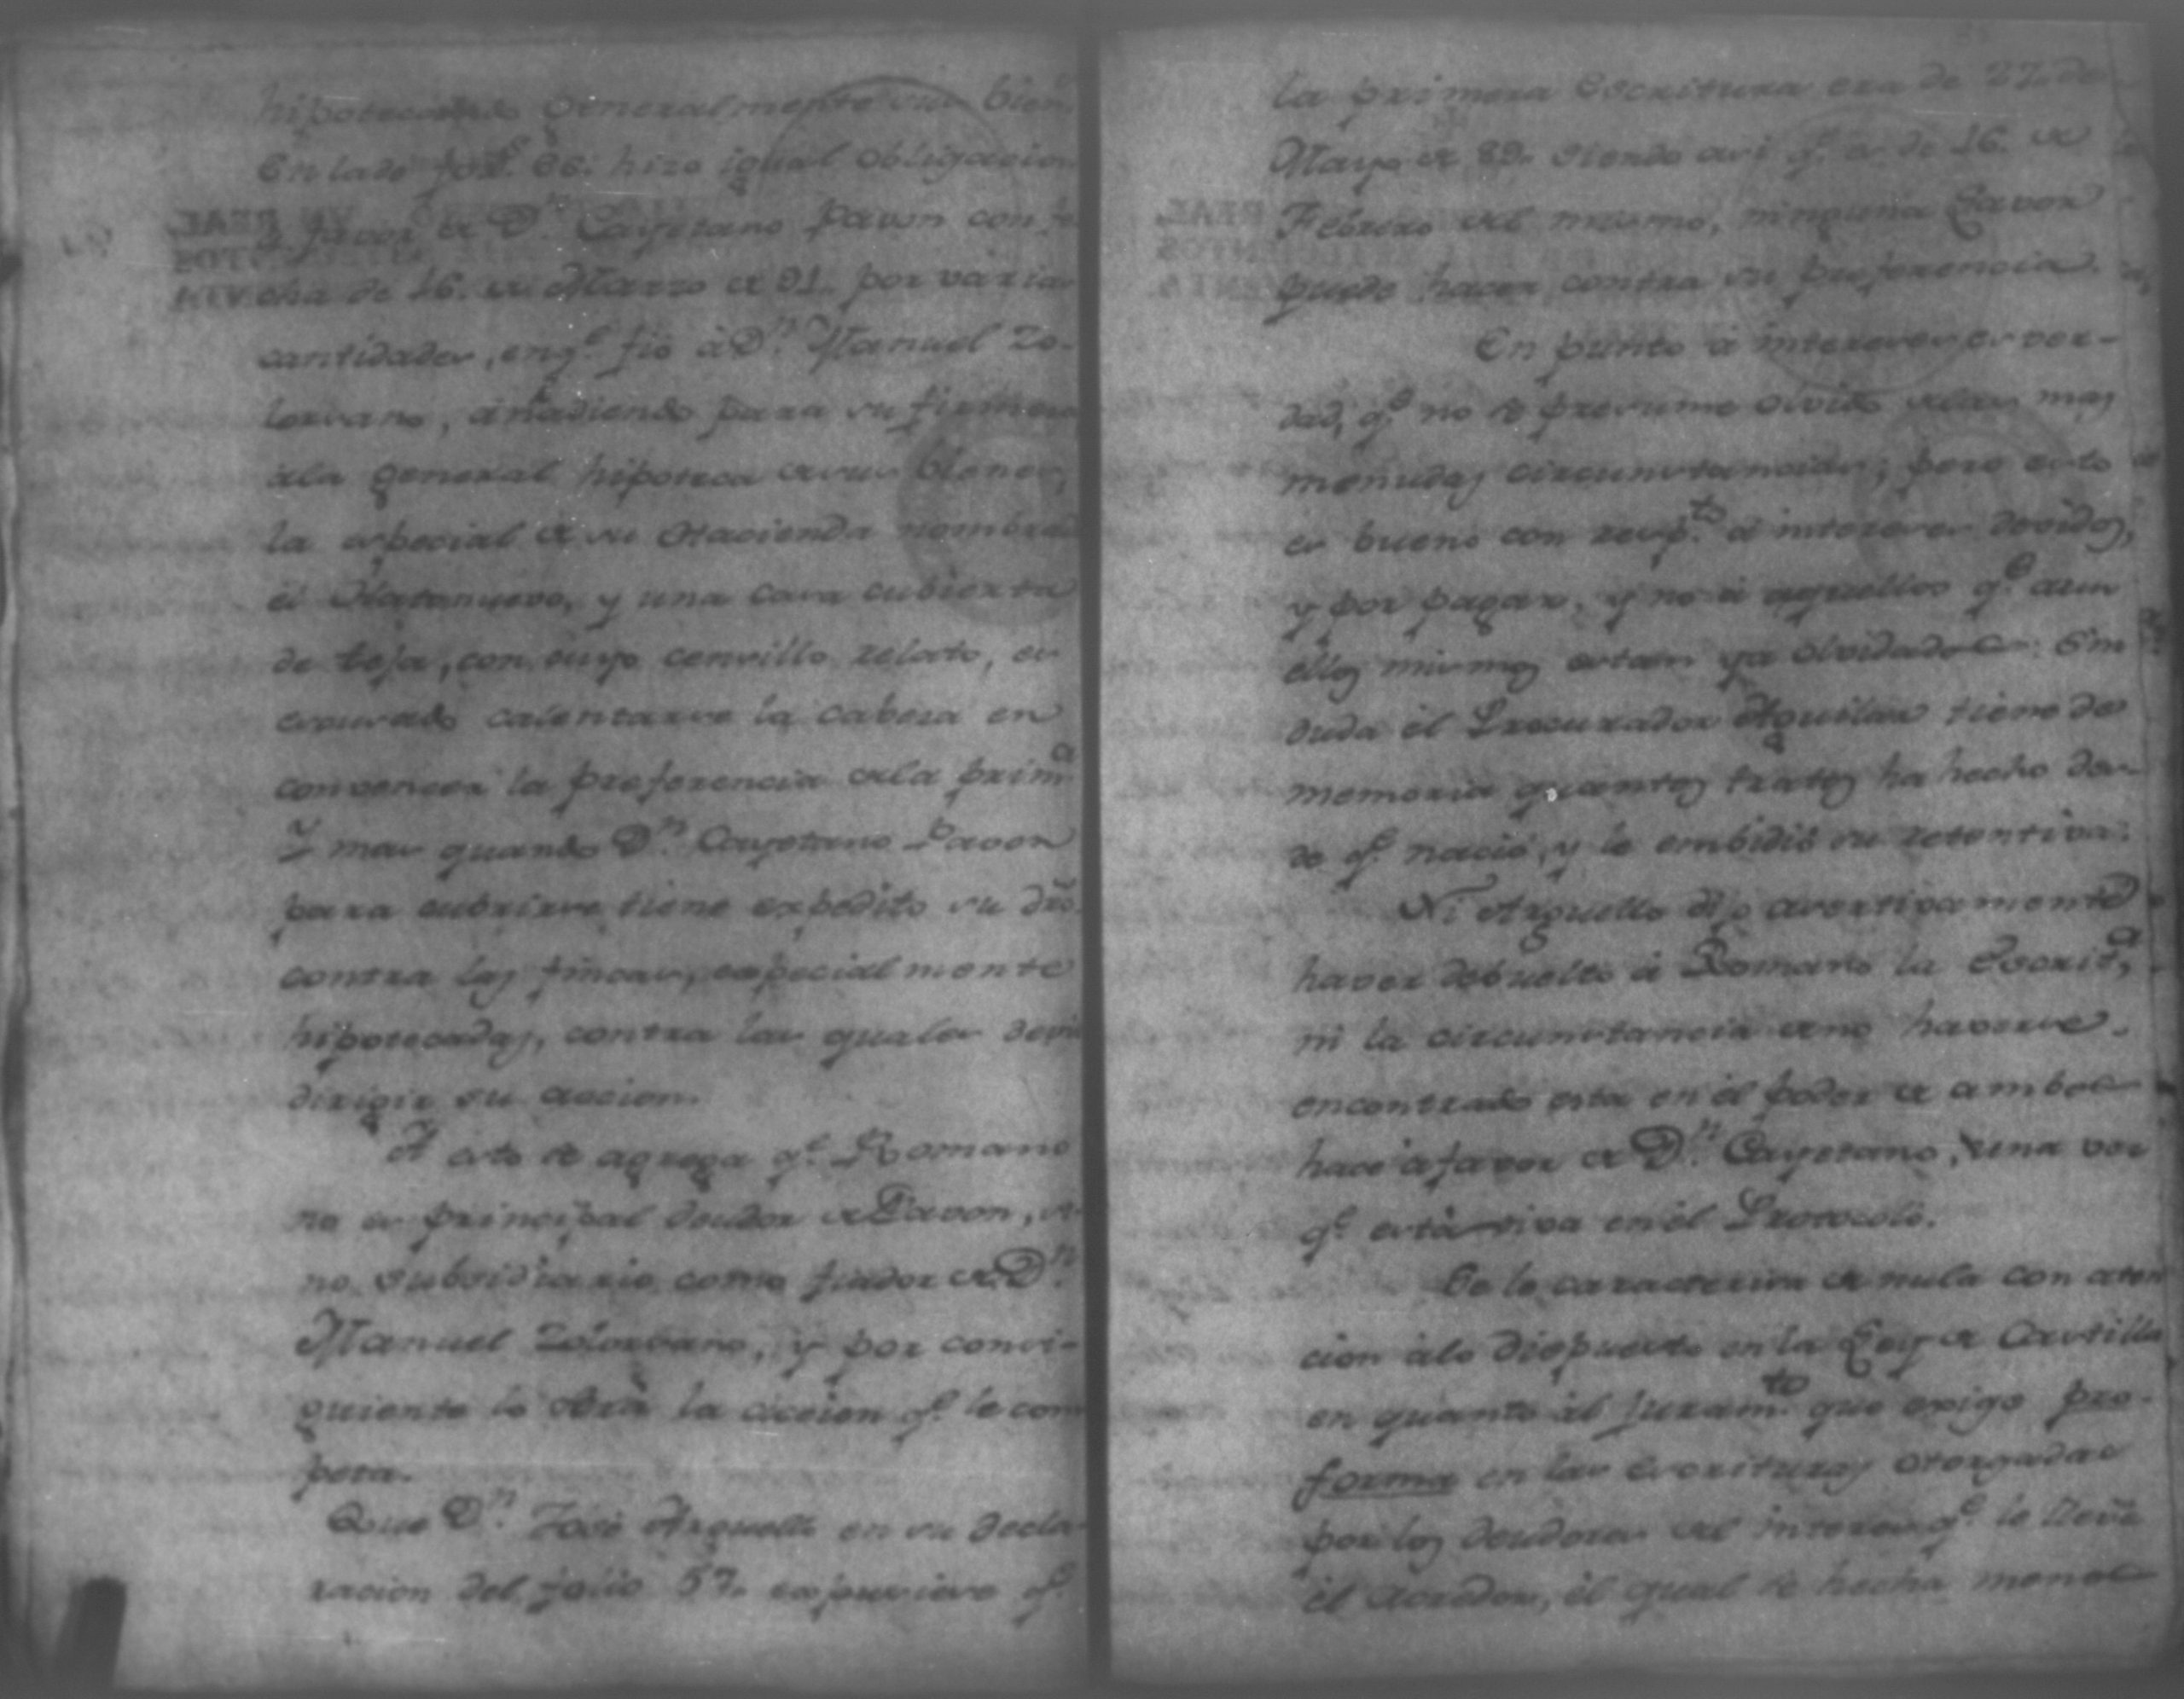 hipotecando generalmente sus bien.
En la de foxs. 66. hizo igual obligacion
a favor de Dn. Cayetano Pavon con fe
cha de 16. de Marzo de 91. por varias
cantidades, en qe. fió á Dn. Manuel Zo-
lorzano, añadiendo para su firmeza
ala general hipoteca de sus bienes,
la especial de su Hacienda nombrada
él Hatonuevo, y una casa cubierta
de teja, con cuyo cencillo relato, es
escusado calentarse la cabeza en
convencer la preferencia dela prima.
Y mas quando Dn. Cayetano Pavon
para cubrirse tiene expedito su dro.
contra las fincas, especialmente
hipotecadas, contra las quales devio
dirigir su accion.
A esto se agrega qe. Romano
no es principal deudor de Pavon, si
no subsidiario como fiador de Dn.
Manuel Zolorzano, y por consi-
guiente le obra la accion qe. le com
peta.
Que Dn. José Arguello en su decla-
racion del folio 57. expusiese qe.
la primera Escritura era de 27. de
Mayo de 89. siendo asi qe. es de 16. de
Febrero del mismo, ninguna favor
puede hacer contra su preferencia.
En punto á intereses es ver-
dad, qe. no se presume olvido delas mas
menudas circunstancias; pero esto
es bueno con respto. á intereses devidos,
y por pagar, y no á aquellos qe. aun
ellos mismos estan ya olvidados. Sin
duda él Procurador Aguilar tiene de
memoria quantos tratos ha hecho des-
de qe. nació, y le embidio su retentiva.
Ni Arguello dijo asertivamente
haver debuelto á Romano la Escrita.
ni la circunstancia de no haverse
encontrado esta en él poder de ambos
hace á favor de Dn. Cayetano, una vez
qe. está viva en él Protocolo.
Se le caracteriza de nula con aten
cion álo dispuesto en la Ley de Castilla
en quanto ál juramto. que exige pro-
forma en las escrituras otorgadas
por los deudores del interes qe. le lleva
él acredor, él qual se hecha menos